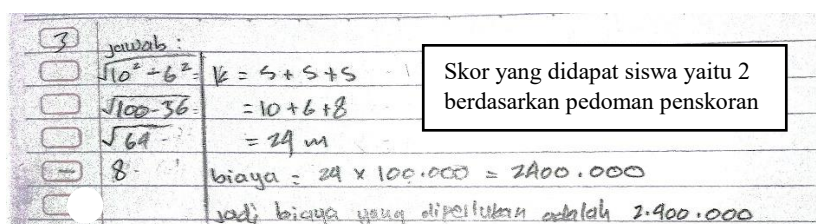 3 jawab :
√10² - 6² =
√100-36 =
√64
8
K = S + S + S
= 10 + 6 + 8
= 24 m
biaya = 24 x 100.000 = 2400.000
jadi biaya yang diperlukan adalah 2.400.000
Skor yang didapat siswa yaitu 2
berdasarkan pedoman penskoran